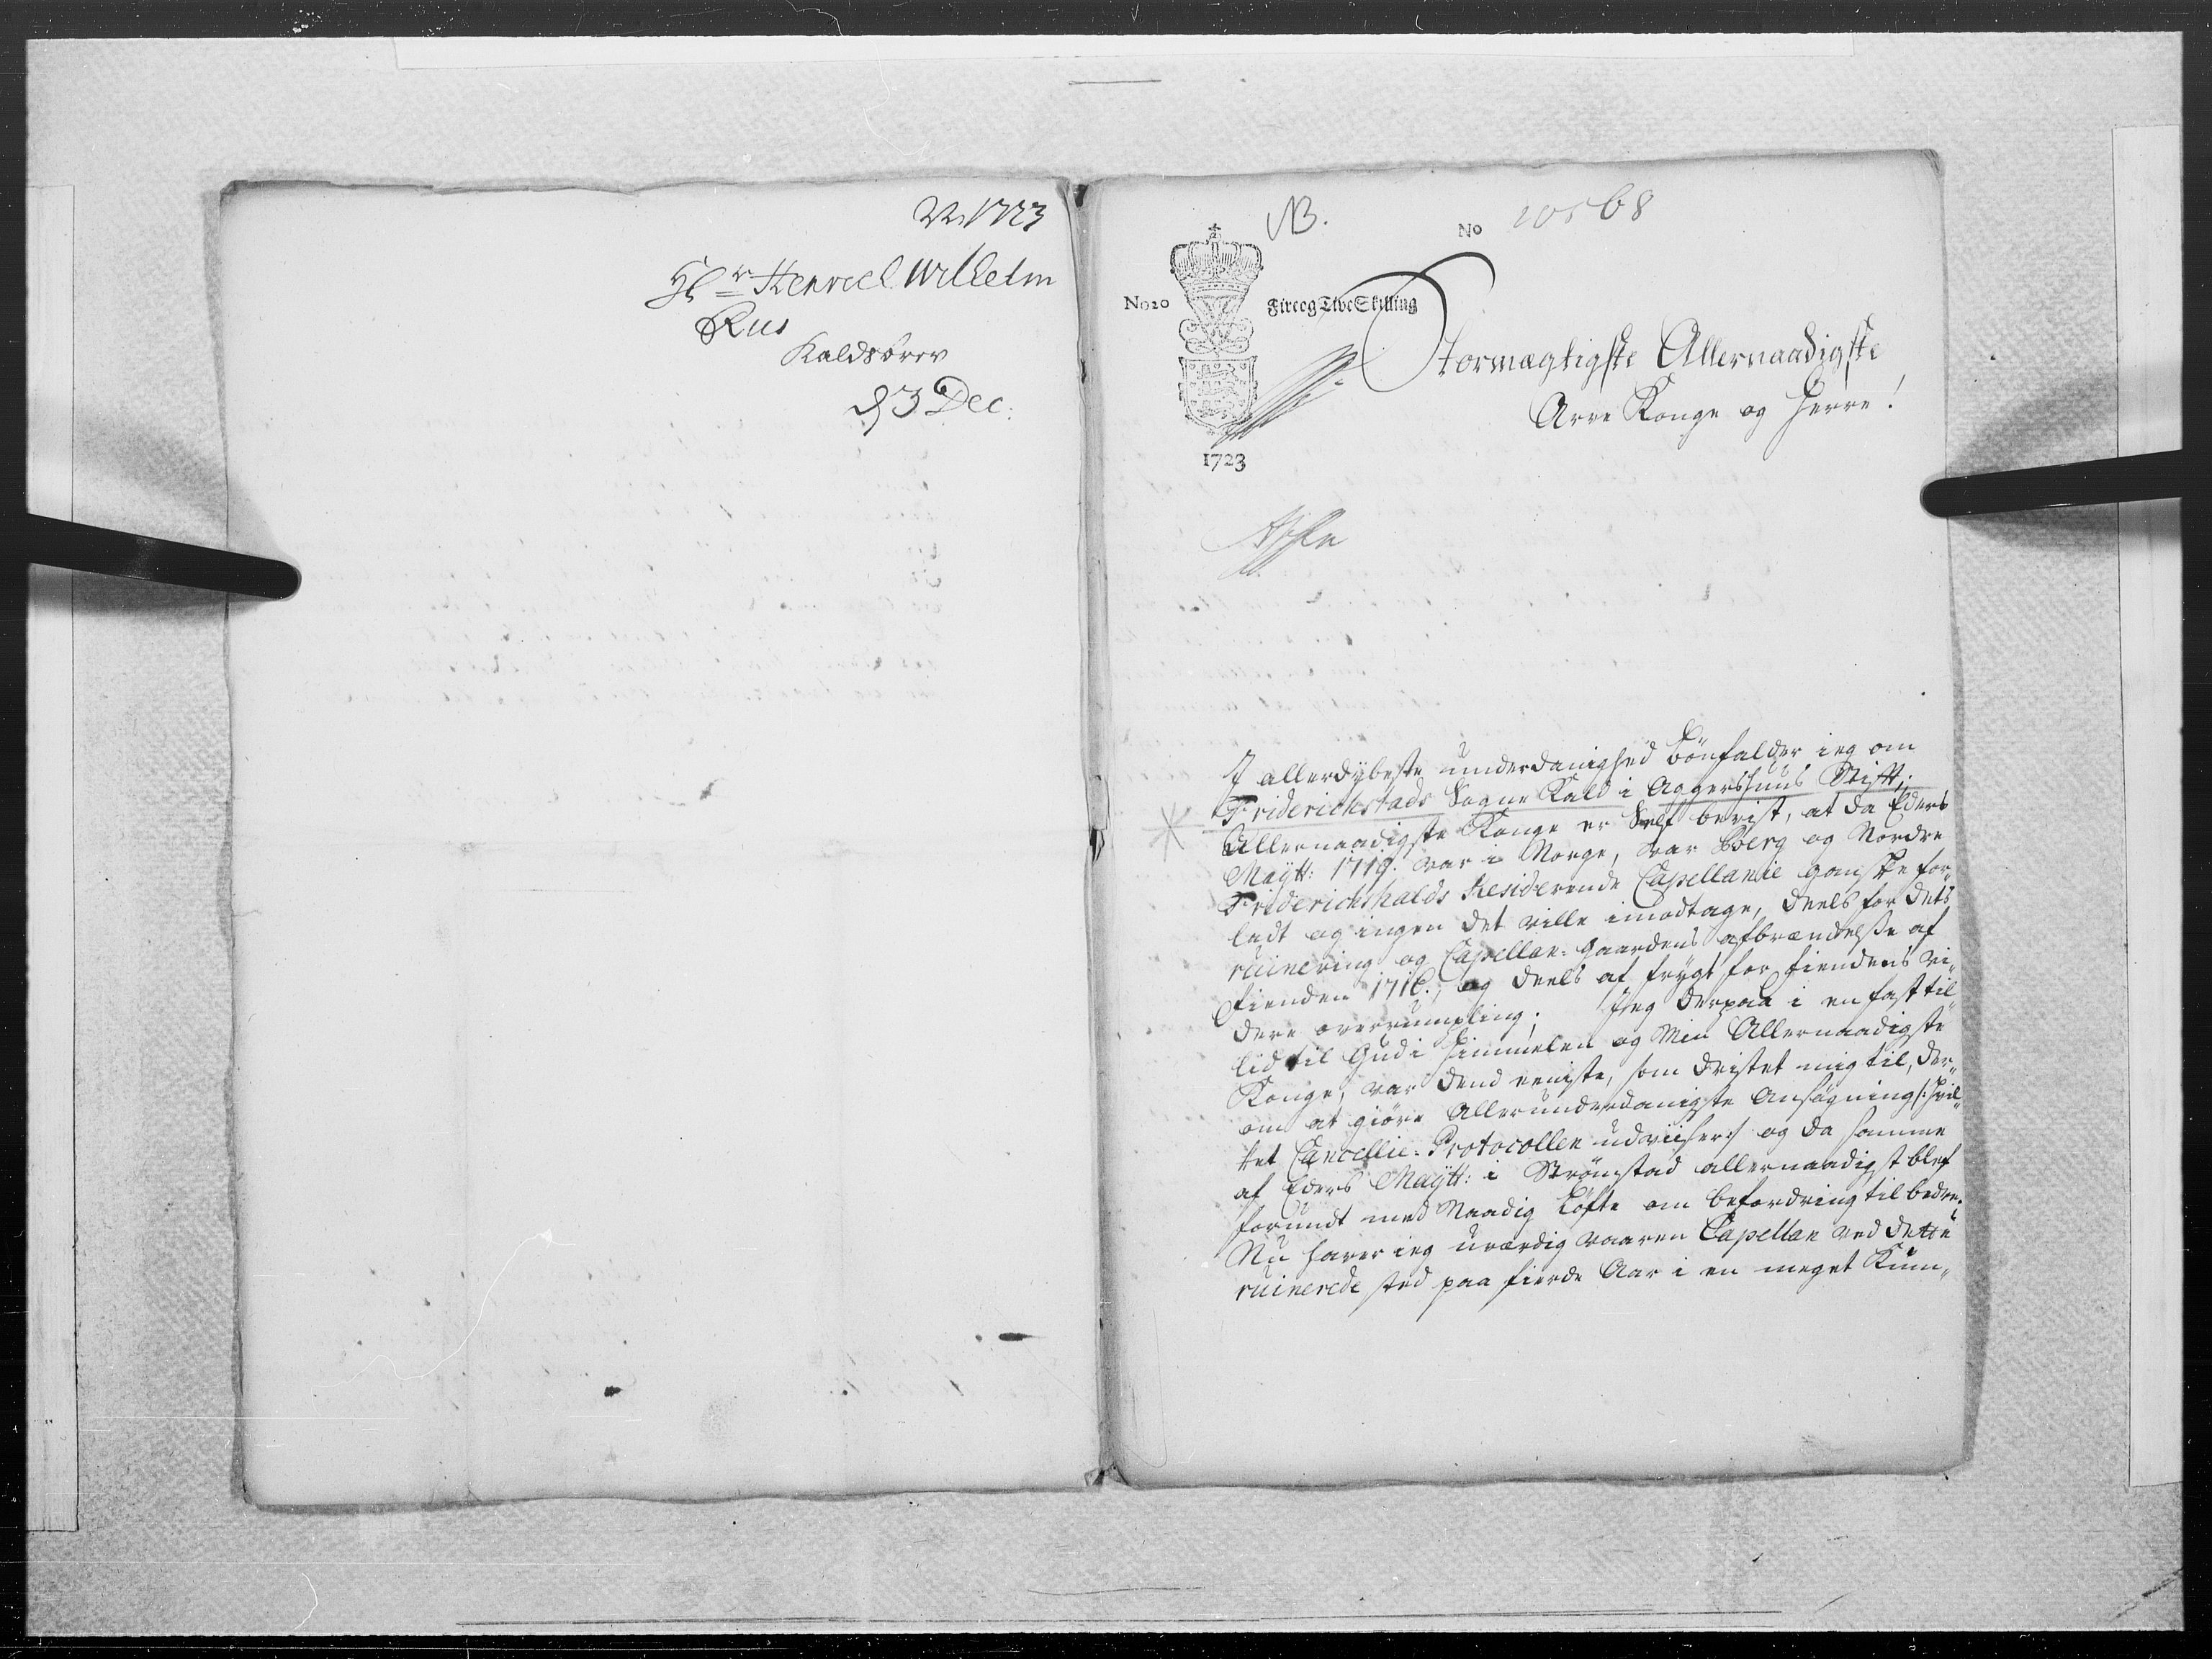 1723
Hr Henrich Wilhelm
Rus
Kaldsbrev
d 3 Dec:
NB.
No 20568
No 20
Fire og Tive Skilling
1723
Stormægtigste Allernaadigste
Arve Konge og Herre!
I allerdybeste underdanighed bönfalder ieg om
Friderichstads Sogne Kald i Aggershuus Stift;
Allernaadigste Konge er Self bevist, at da Eders
Maÿtt: 1719. var i Norge, var Berg og Nordre
Friderichshalds Residerende Capellanie ganske for„
ladt og ingen det ville imodtage, deels for dets
ruinering og Capellan-gaardens afbrændelse af
fienden 1716., og deels af frÿgt for fiendens vi„
dere overrumpling; Jeg derpaa i en fast til„
lid til Gud i Himmelen og Min Allernaadigste
Konge, var dend eeniste, som dristet mig til, der„
om at giöre Allerunderdanigste Ansögning /: hvil„
ket Cancellie-Protocollen udviiser :/ og da samme
af Eders Maÿtt: i Strömstad allernaadigst blef
forundt med Naadig Löfte om befordring til bedre;
Nu haver ieg uværdig vaaren Capellan ved dette
ruinerede sted paa fierde Aar i en meget Kum„